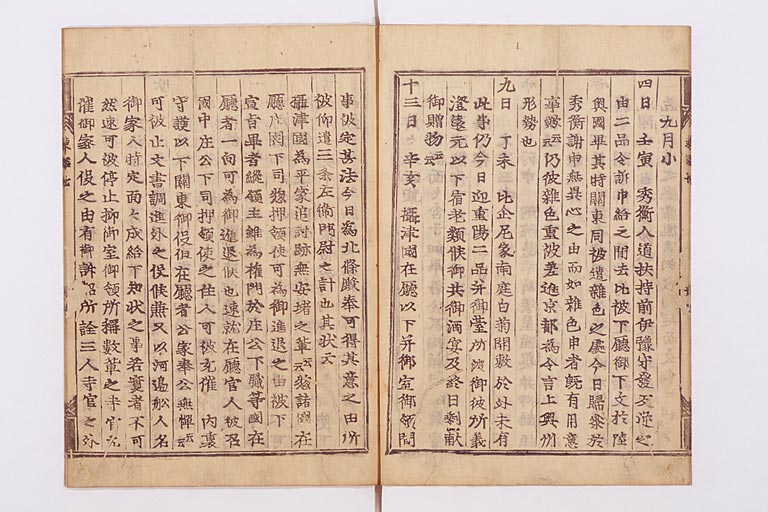 九月小
四日　壬寅　秀衡入道扶持前伊豫守發反逆之
由二品令訴申給之間去比被下廳御下文於陸
奥國畢其時關東同被遣雜色之處今日歸參於
秀衡謝申無異心之由而如雜色申者既有用意
事歟云云仍彼雜色重被差進京都為令言上奥州
形勢也
九日　丁未　比企尼家南庭白菊開敷於外未有
此事仍今日迎重陽二品并御臺所渡御彼所義
澄遠元以下宿老類候御共御酒宴及終日剩獻
御贈物云云
十三日　辛亥　攝津國在廳以下并御室御領間
事被定其法今日為北條殿奉可得其意之由所
被仰遣三条左衛門尉之計也其状云
攝津國為平家追討跡無安堵之輩云云惣諸國在
廳庄園下司惣押領使可為御進退之由被下
宣旨畢者縱領主雖為權門於庄公下職等國在
廳者一向可為御進退候也速就在廳官人被召
國中庄公下司押領使之注文可被宛催　内裏
守護以下關東御役但在廳者公家奉公無憚云云
可被止文書調進外之役候兼又以河邊船人名
御家人時定面々成給下知状之事若實者不可
然速可被停止抑御室御領所稱數輩之寺官
催御家人役之由有御訴訟所詮三人寺官之外